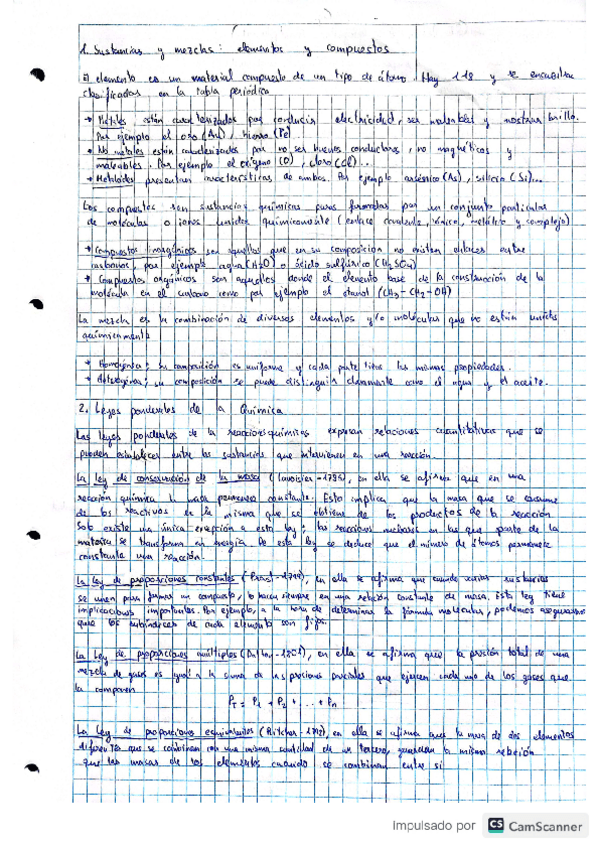 1. Sustancias y mezclas: elementos y compuestos
El elemento es un material compuesto de un tipo de átomo. Hay 118 y se encuentran
clasificados en la tabla periódica
→ Metales están caracterizados por conducir electricidad, ser maleables y mostrar brillo.
Por ejemplo el oro (Au), hierro (Fe)
→ No metales están caracterizados por no ser buenos conductores, no magnéticos y
maleables. Por ejemplo el oxígeno (O), cloro (Cl)...
→ Metaloides presentan características de ambos. Por ejemplo arsénico (As), silicio (Si)...
Los compuestos son sustancias químicas puras formadas por un conjunto particular
de moléculas o iones unidos químicamente (enlace covalente, iónico, metálico y complejo)
→ Compuestos inorgánicos son aquellos que en su composición no existen enlaces entre
carbonos, por ejemplo agua (H2O) o ácido sulfúrico (H2SO4)
→ Compuestos orgánicos son aquellos donde el elemento base de la construcción de la
molécula en el carbono como por ejemplo el etanol (CH3-CH2-OH)
La mezcla es la combinación de diversos elementos y/o moléculas que no están unidos
químicamente
→ Homogénea: su composición es uniforme y cada parte tiene las mismas propiedades.
→ Heterogénea: su composición se puede distinguir claramente como el agua y el aceite.
2. Leyes ponderales de la Química
Las leyes ponderales de la reacciones químicas expresan relaciones cuantitativas que se
pueden establecer entre las sustancias que intervienen en una reacción.
La Ley de conservación de la masa (Lavoisier - ), en ella se afirma que en una
reacción química la masa permanece constante. Esto implica que la masa que se consume
de los reactivos es la misma que se obtiene de los productos de la reacción
Solo existe una única excepción a esta ley: las reacciones nucleares en las que parte de la
materia se transforma en energía. De esta ley se deduce que el número de átomos permanece
constante una reacción.
La Ley de proporciones constantes (Proust - ), en ella se afirma que cuando varias sustancias
se unen para formar un compuesto, lo hacen siempre en una relación constante de masa. Esta ley tiene
implicaciones importantes. Por ejemplo, a la hora de determinar la fórmula molecular, podemos asegurarnos
que los subíndices de cada elemento son fijos.
La Ley de proporciones múltiples (Dalton - ), en ella se afirma que la presión total de una
mezcla de gases es igual a la suma de las presiones parciales que ejercen cada uno de los gases que
la componen
PT = P1 + P2 + ... + Pn
La Ley de proporciones equivalentes ( - ), en ella se afirma que la masa de dos elementos
diferentes que se combinan con una misma cantidad de un tercero, guardan la misma relación
que las masas de los elementos cuando se combinan entre sí
Impulsado por CS CamScanner